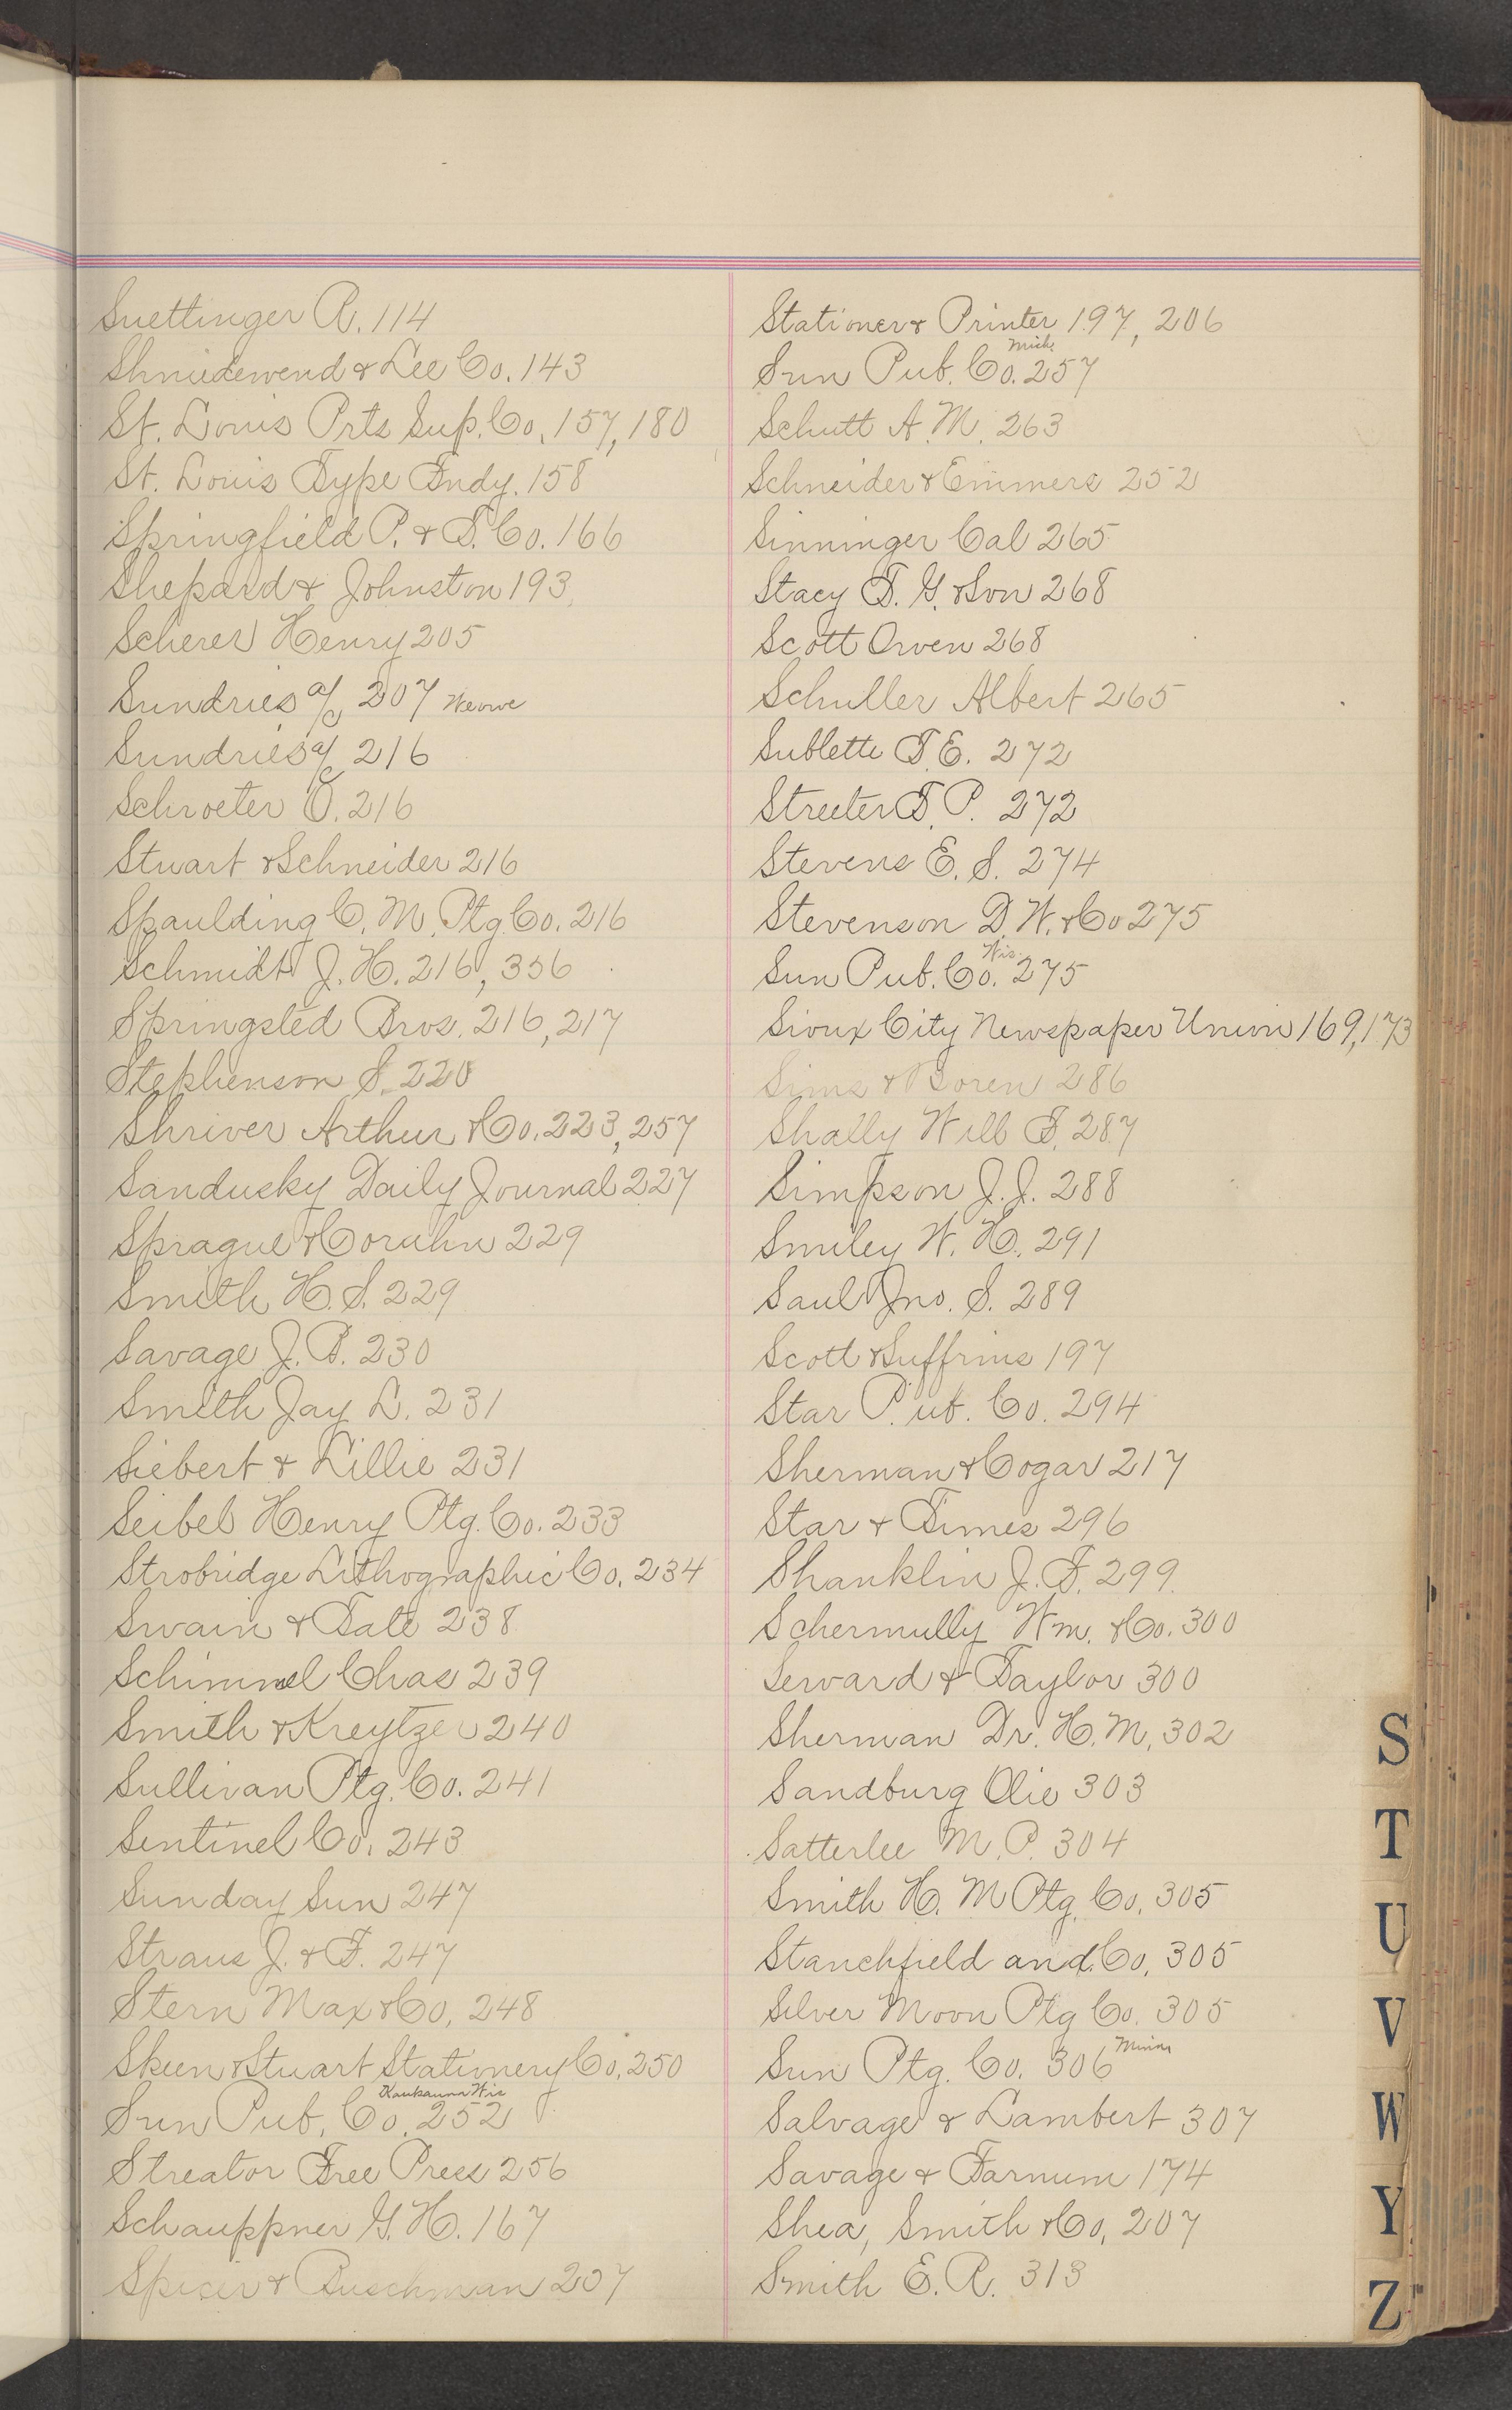 Suettinger R. 114
Shniedewend & Lee Co. 143
St. Louis Prts Sup. Co. 157, 180
St. Louis Type Fndy. 158
Springfield P. & S. Co. 166
Shepard & Johnston 193
Scherer Henry 205
Sundries a/c 207
Sundries a/c 216
Schroeter O. 216
Stuart & Schneider 216
Spaulding C. M. Ptg. Co. 216
Schmidt J. H. 216, 356
Springsted Bros. 216, 217
Stephenson S. 220
Shriver Arthur & Co. 223, 257
Sandusky Daily Journal 227
Sprague & 229
Smith H. S. 229
Savage J. B. 230
Smith Jay L. 231
Siebert & Lillie 231
Seibel Henry Ptg. Co. 233
Strobridge Lithographic Co. 234
Swain & Tate 238
Schimmel Chas 239
Smith & Kreytzer 240
Sullivan Ptg. Co. 241
Sentinel Co. 243
Sunday Sun 247
Straus J. & F. 247
Stern Max & Co. 248
Skeen & Stuart Stationery Co. 250
Kaukauna Wis
Sun Pub. Co. 252
Streator Free Press 256
Schauppner G. H. 167
Spicer & Buschman 207
Stationer & Printer 197, 206
Mich.
Sun Pub. Co. 257
Schutt A. M. 263
Schneider & Emmers 252
Sinninger Cal 265
Stacy T. G. & Son 268
Scott Owen 268
Schuller Albert 265
Sublette T. E. 272
Streeter F. P. 272
Stevens E. S. 274
Stevenson D. W. & Co 275
Wis.
Sun Pub. Co. 275
Sioux City Newspaper Union 169, 173
Sims & Boren 286
Shally Will F. 287
Simpson J. J. 288
Smiley W. H. 291
Saul Jno. S. 289
Scott & Suffrins 197
Star Pub. Co. 294
Sherman & Cogar 217
Star & Times 296
Shanklin J. F. 299
Schermully Wm. & Co. 300
Seward & Taylor 300
Sherman Dr. H. M. 302
Sandburg Olie 303
Satterlee M. P. 304
Smith H. M Ptg. Co. 305
Stanchfield and Co. 305
Silver Moon Ptg Co. 305
Sun Ptg. Co. 306 Minn
Salvage & Lambert 307
Savage & Farnum 174
Shea, Smith & Co. 207
Smith E. R. 313
S
T
U
V
W
Y
Z